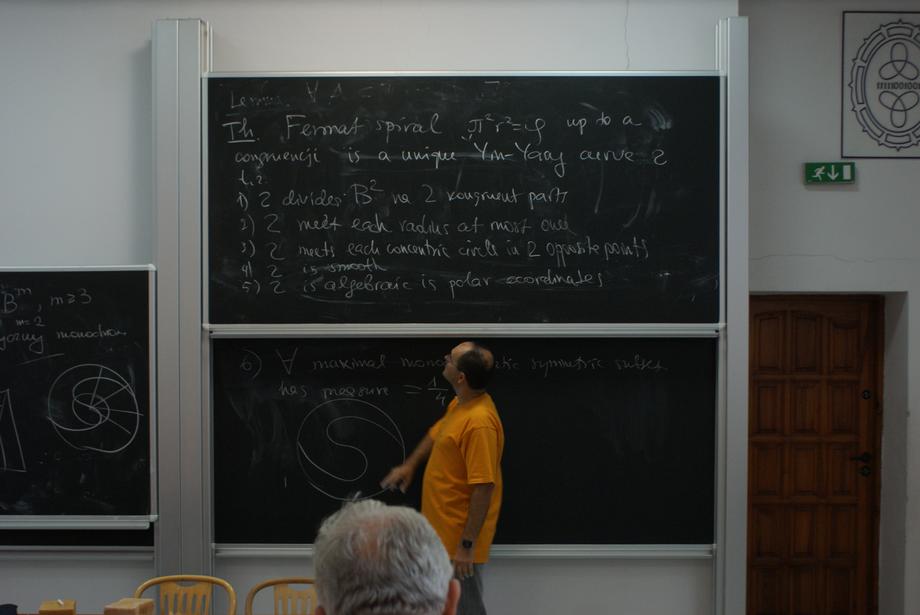 Th. Fermat spiral π²r²=φ up to a
congruencji is a unique Yin-Yang curve Z
t.ż.
1) Z divides B² na 2 kongruent parts
2) Z meet each radius at most once
3) Z meets each concentric circle in 2 opposite points
4) Z is smooth
5) Z is algebraic is polar coordinates
B^m, m≥3
m=2
monochrom
6) ∀ maximal symmetric subset
has measure = 1/4